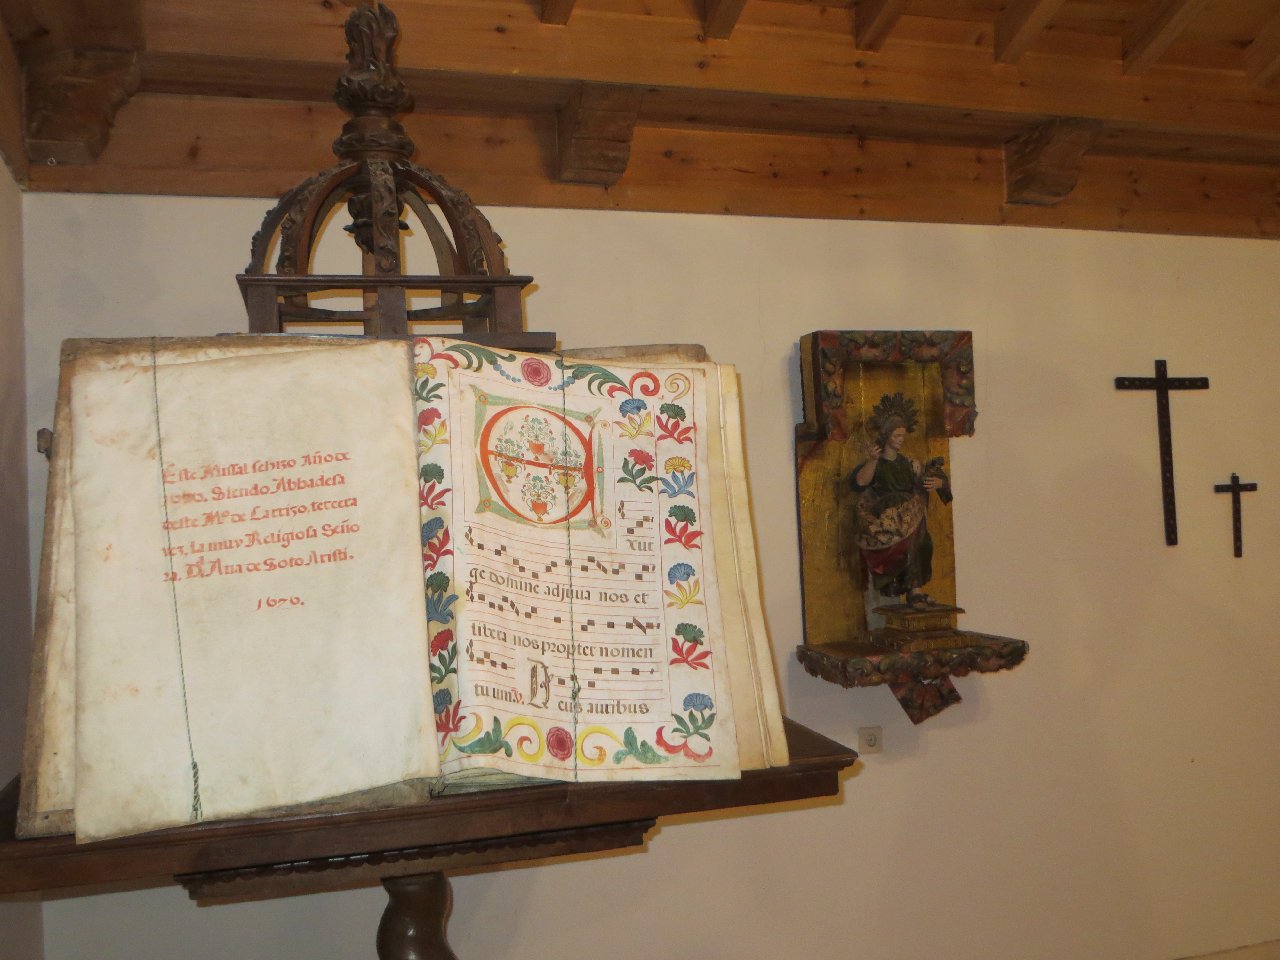 Este Missal sehizo Año de
1670. Siendo Abbadesa
deste Mº de La rrizo, tercera
vez, la muy Religiosa Seño
ra. Dª Ana de Soto Aristi.
1670.
E
xur
ge domine adjuua nos et
libera nos propter nomen
tuum. V. Deus auribus